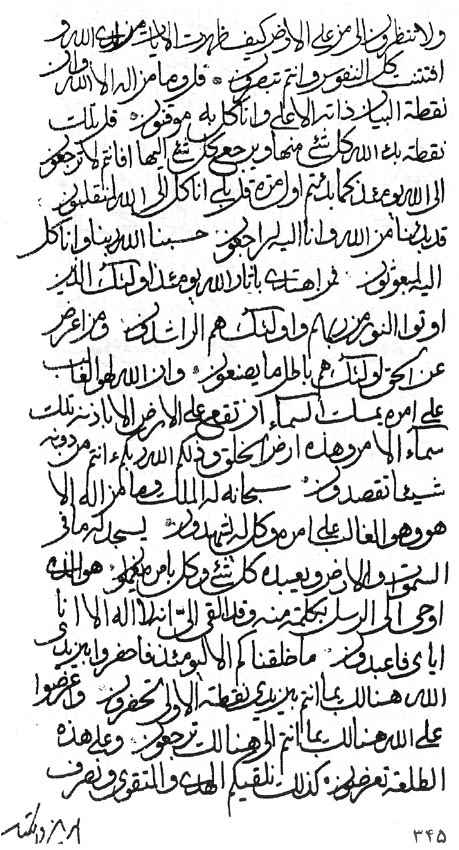 ولا تنظرون الى من على الارض كيف ظهرت الايات من لدى الله و
افتنت كل النفوس وانتم تبصرون قل وما من اله الا الله وان
نقطة البيان ذاته الاعلى وانا كل به موقنون قل تلك
نقطة بدء الله كل شئ منها ويرجع كل شئ اليها افانتم لا ترجعون
الى الله يومئذ كما بدئتم اول مرة قل بلى انا كل الى الله لمنقلبون
قد بدئنا من الله وانا اليه لراجعون حسبنا الله ربنا وانا كل
اليه لمبعوثون فمن اهتدى باثار الله يومئذ اولئك الذين
اوتوا النور من ربهم واولئك هم الراشدون ومن اعرض
عن الحق اولئك هم باطل ما يصنعون وان الله لهو الغالب
على امره يمسك السماء ان تقع على الارض الا باذنه تلك
سماء الامر وهذه ارض الخلق وذلكم الله ربكم ءانتم من دونه
شيئا تقصدون سبحانه له الملك وما من اله الا
هو وهو الغالب على امره وكل له يشهدون يسجد له ما في
السموات والارض ويعبده كل شئ وكل بامره هو الذى
اوحى الى الرسل بكلمة منه وقد القى الىّ انه لا اله الا انا
اياى فاعبدون ما خلقناكم الا ليومئذ فاحضروا بين يدى
الله هنالك بما انتم بين يدى نقطة الاولى تحضرون واعرضوا
على الله هنالك بما انتم الى هنالك ترجعون وعلى هذه
الطلعة تعرضون كذلك نلقيكم الهدى والتقوى ونصرف
٣٤٥